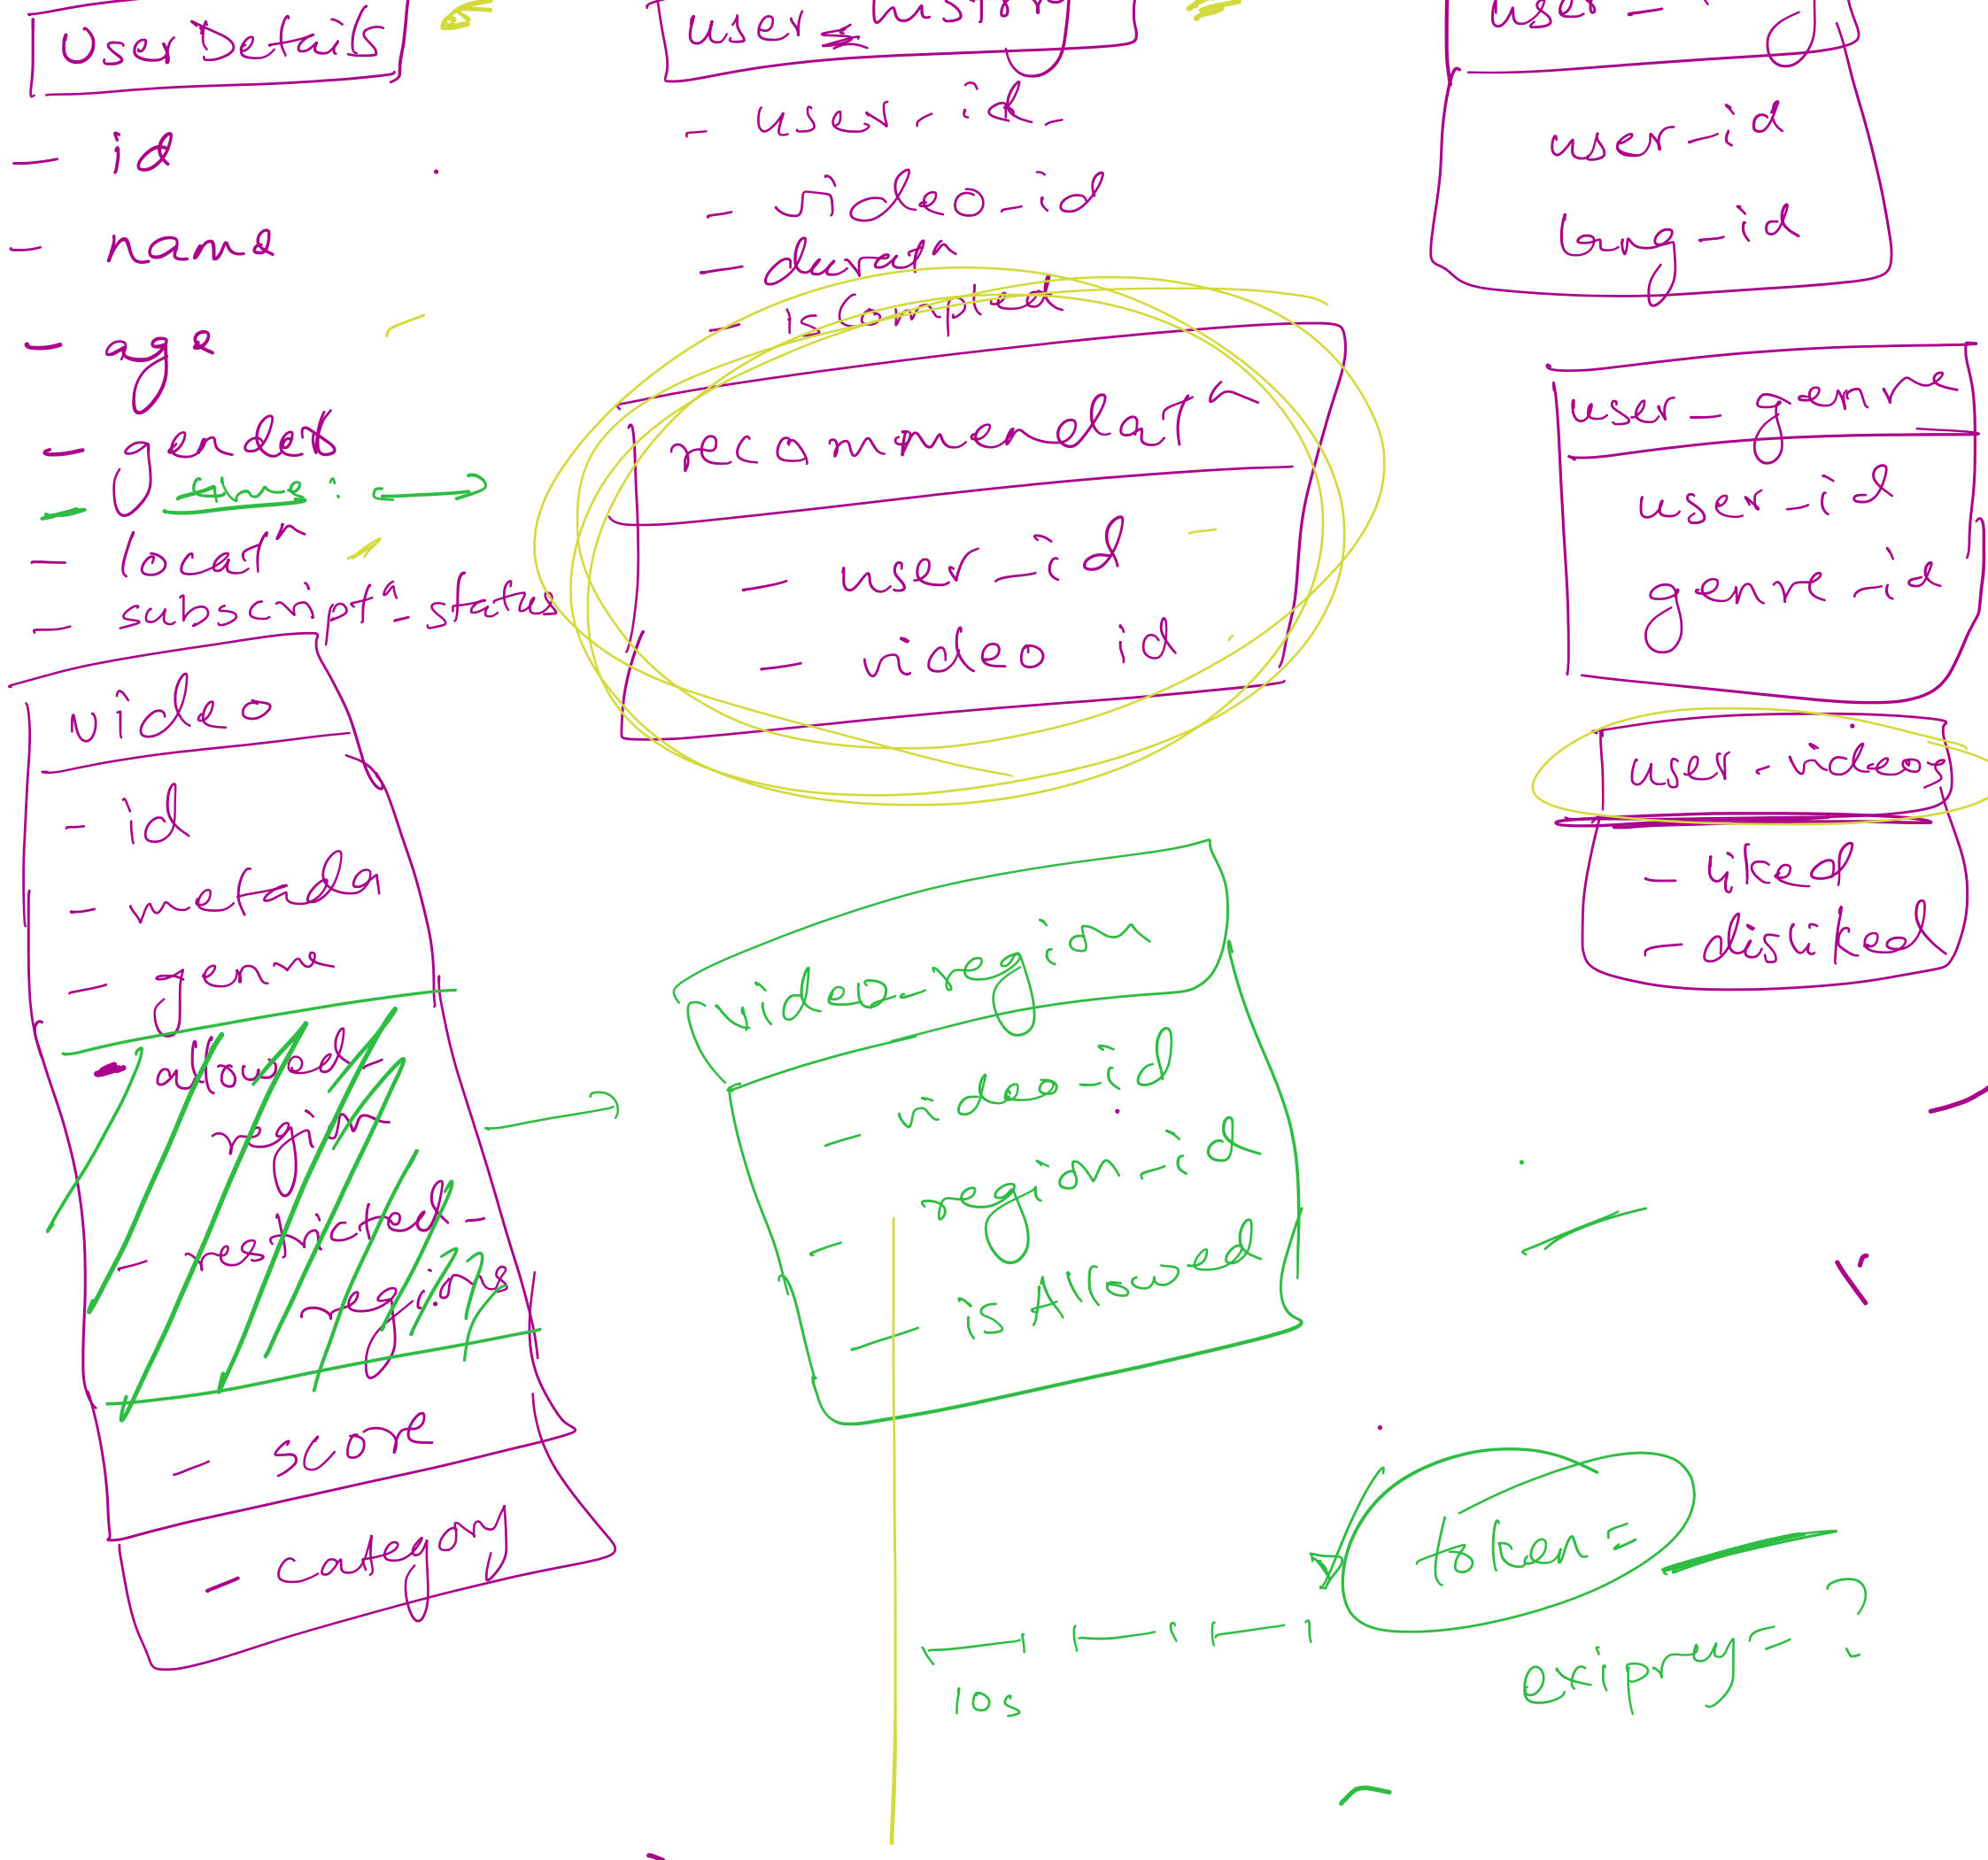 User Details
- id
- name
- age
- gender
- locat^
- subscript^_status
video
- id
- metada
- genre
- allowed_
region
- restricted_
regions
- score
- category
- user_id
- video_id
- durat^
- is Completed
recommendat^
- user_id
- video id
video_region
- video_id
- region_id
- is Allowed
10s
user_id
lang_id
user_genre
user_id
genre_id
user_videos
- liked
- disliked
token =
exiprey = ?